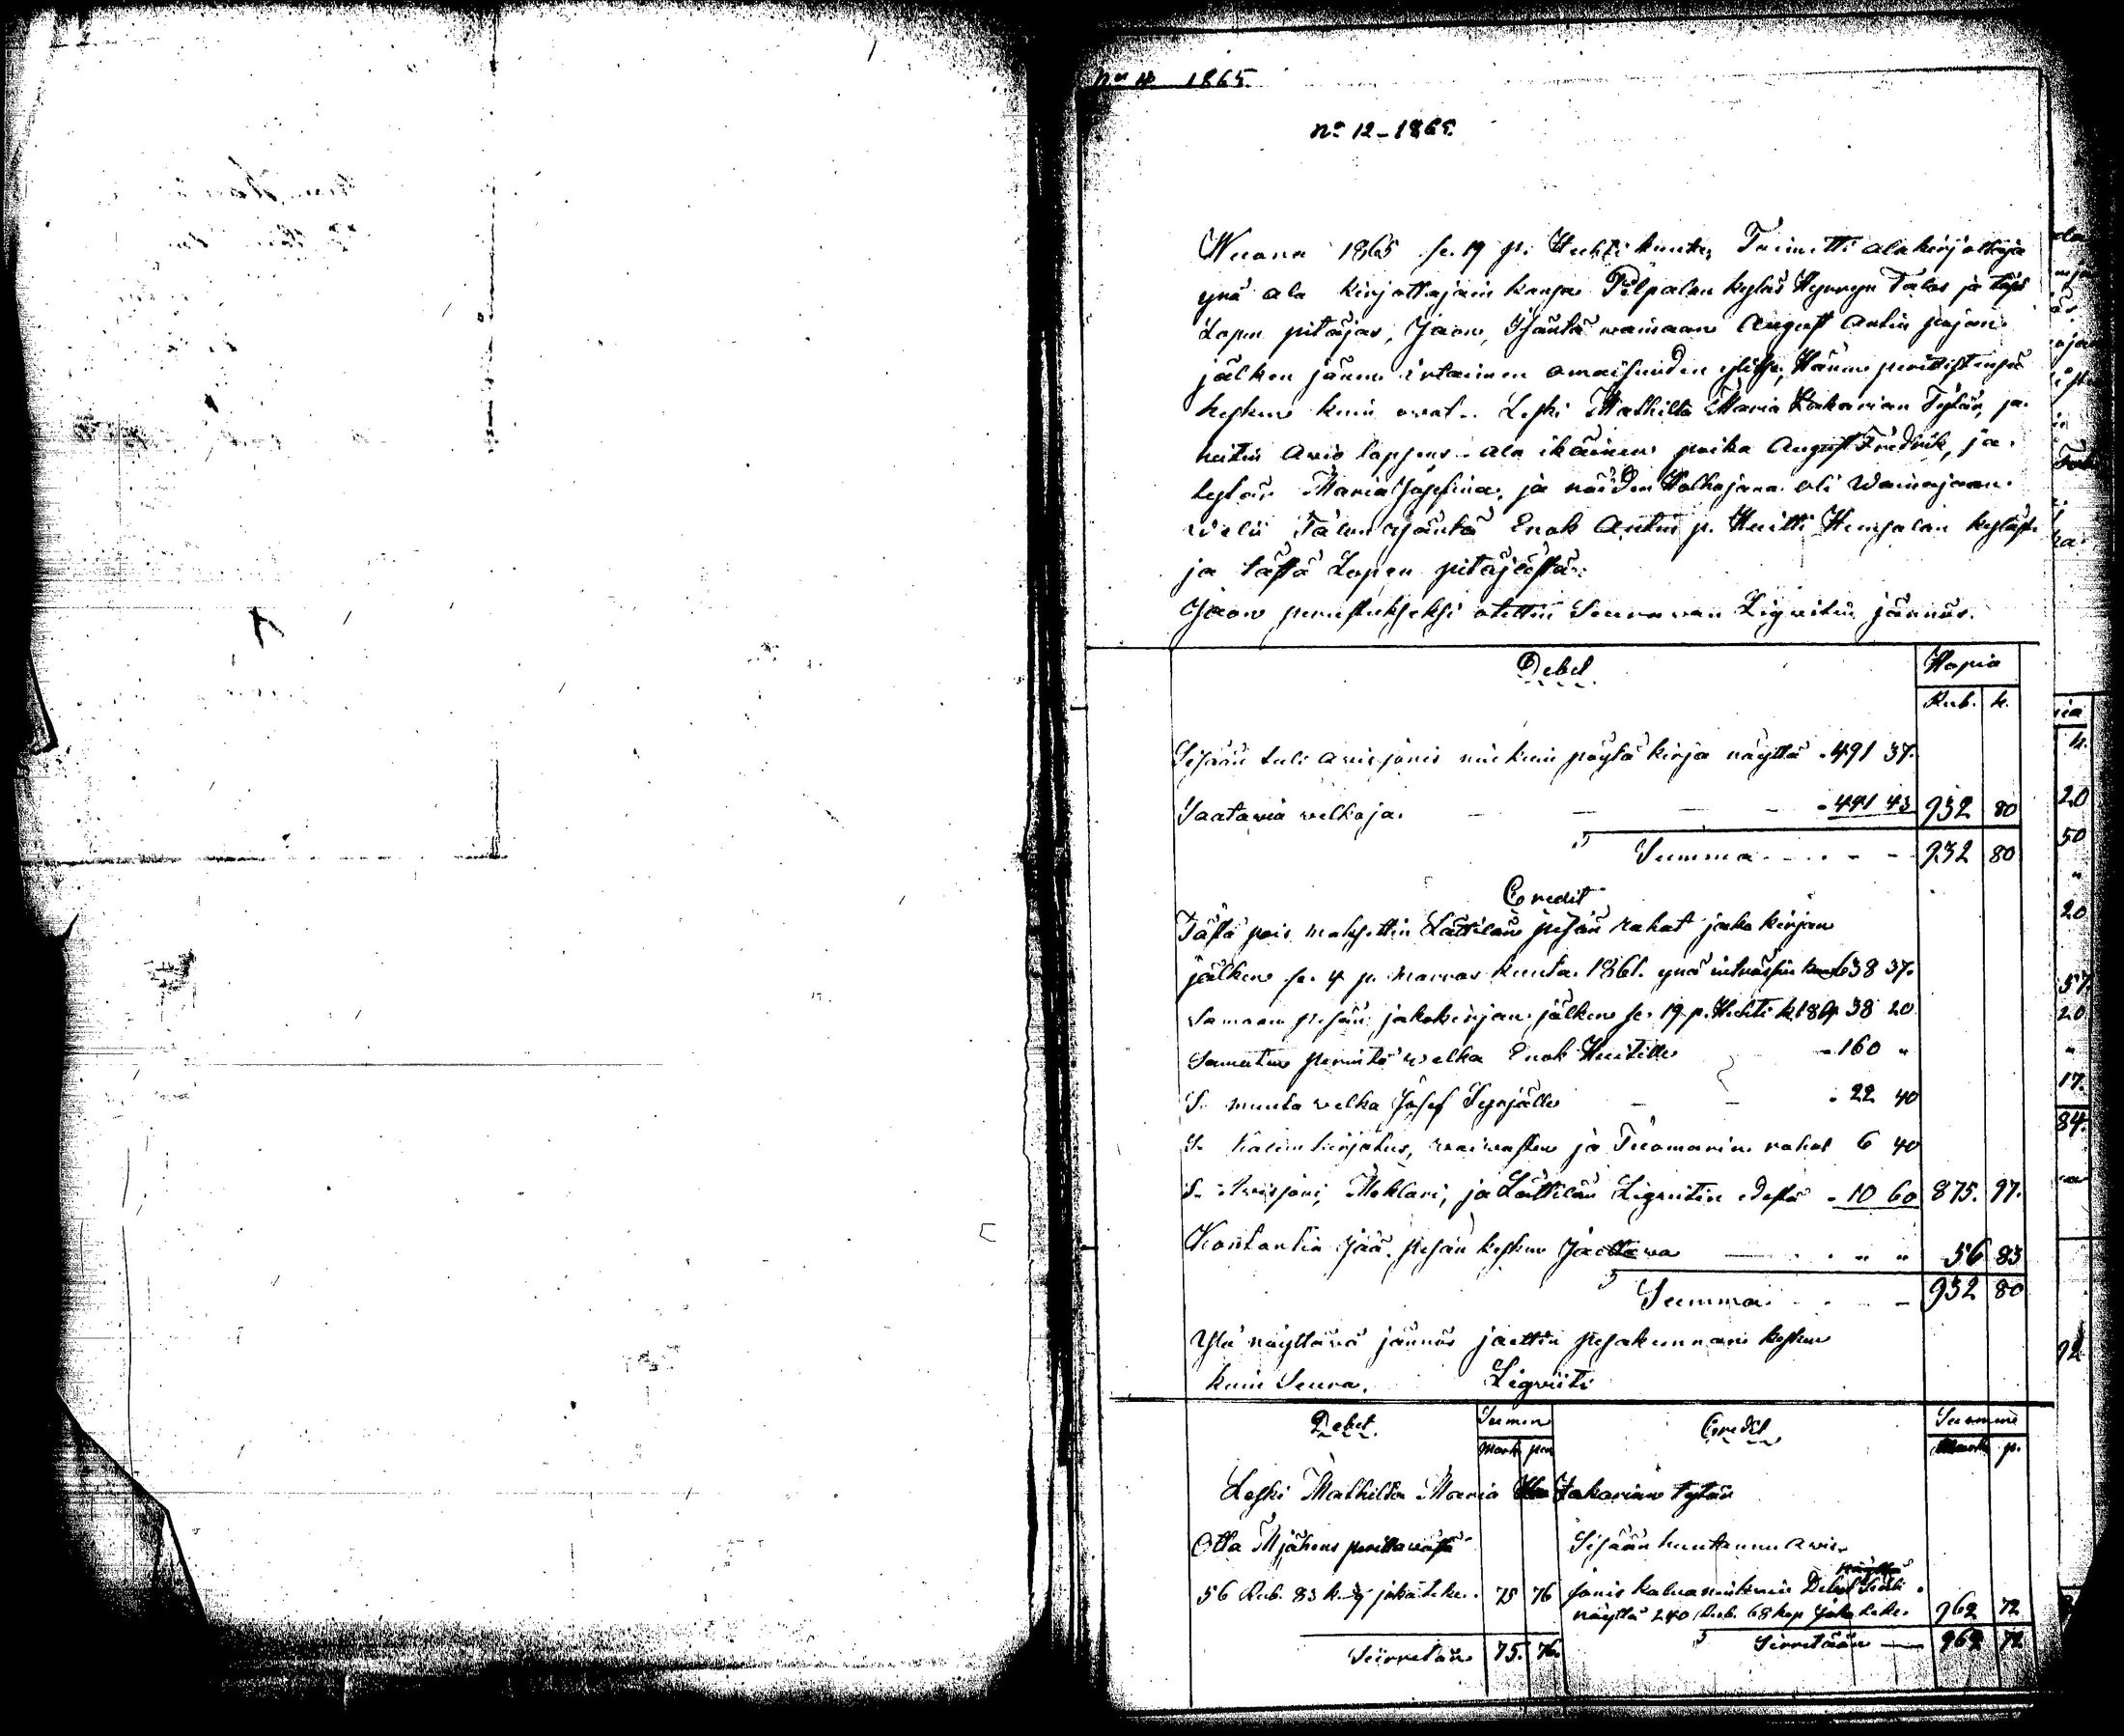 1865.
No 12 - 1865.
Wuona 1865 se. 19 p. Huhti kuuta, Toimitti alakirjoittaja
ynä ala kirjottajain kansa Pilpalan kyläs Hynnyn Talos ja täs
Lopen pitäjäs, Jaon, Isäntä wainaan August Antin pojan
jälken jänen irtaimen omaisuuden ylitse, Hänen perillistensä
kesken kuin owat. Leski Mathilta Maria Sakarian Tytär, ja
heitin Awio lapsens ala ikäinen poika August Fredrik, ja
tytär Maria Josefina, ja näiden Holhojana oli Wainajaan
Weli Talon isäntä Enok Antin p. Huitti Hunsalan kyläst
ja tästä Lopen pitäjästä:
Jaon perustukseksi otettin Seurawan Ligwitin jännös.
Debet. Hopia
Rub. k.
Sisään tuli awisjonis niinkuin pöytä kirja näyttä - 491 37.
Saatawia welkoja. - - - 441 43 932 80
Summa - - - 932 80
Credit
Tästä pois maksettin Lättilän pesän rahat jako kirjan
jälken se. 4 p. marras kuuta. 1861. ynä 638 37.
Samaan pesän jakokirjan jälken se. 19 p. Huhti k. 1864 38 20
Samuten perintö welka Enok Huitille - 160 "
S. muuta welka Josef Syrjälle - - 22 40
S. kalun kirjotus, waiwasten ja Tuomarin rahat 6 40
S. Awisjoni, Meklari, ja Lättilän Ligwitin edestä - 10 60 875. 97.
Kontantin jää pesän kesken Jaettawa - " " 56 83
Summa. - - 932 80
Yllä näyttäwä jännös jaettin pesakunnan kesken
kuin Seura. Ligwiiti
Debet. Summa Credit Summa
Mark pen Mark p.
Leski Mathilda Maria Sakarian tytär
Otta Myöhens perittäwästä Sisään huutannu awis-
56 Rub. 83 k. joka teke. 75 76 jonis kalua niinkuin Debet
näyttä 240 Rub. 68 kop Joka teke. 962 72
Siirretän 75. 76 Siirretään - 962 72